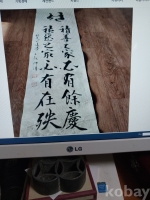 積善之家必有餘慶
積惡之家必有在殃
LG
kobay